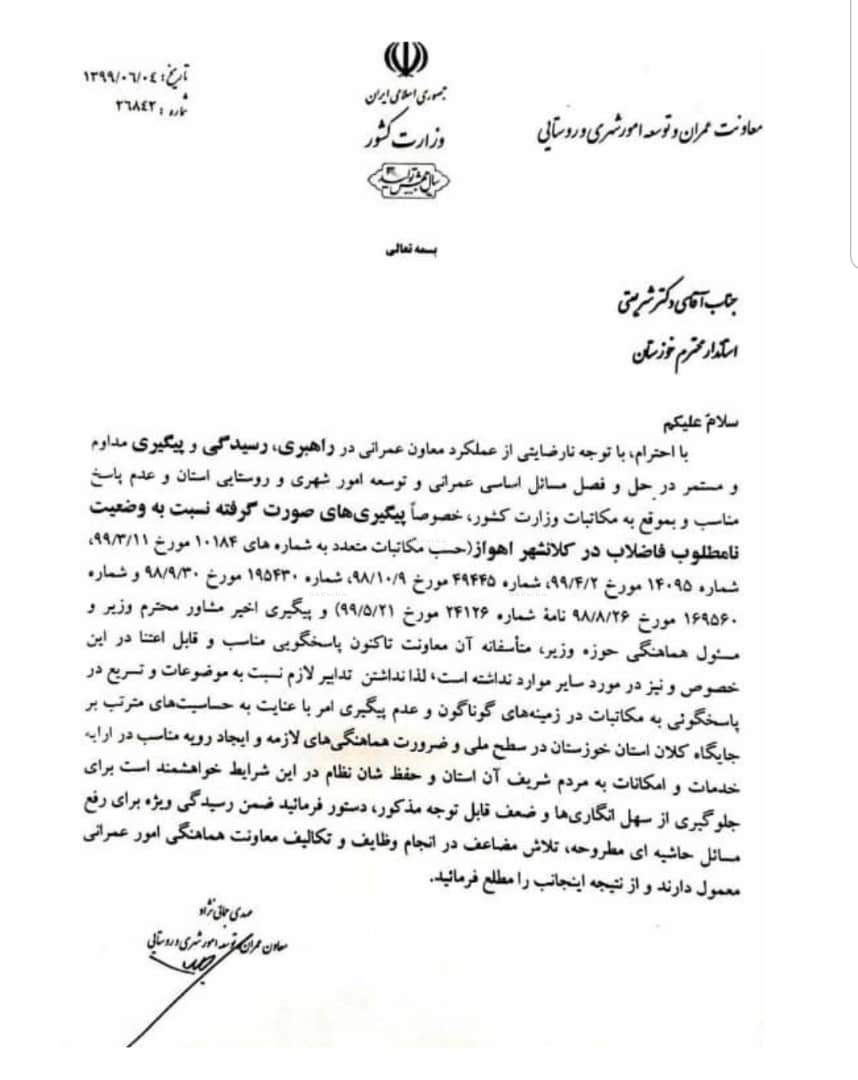 تاریخ: ۱۳۹۹/۰۶/۰۴
شماره: ۲۶۸۴۲
جمهوری اسلامی ایران
وزارت کشور
سال جهش تولید
معاونت عمران و توسعه امور شهری و روستایی
بسمه تعالی
جناب آقای دکتر شریعتی
استاندار محترم خوزستان
سلامٌ علیکم
با احترام، با توجه نارضایتی از عملکرد معاون عمرانی در راهبری، رسیدگی و پیگیری مداوم
و مستمر در حل و فصل مسائل اساسی عمرانی و توسعه امور شهری و روستایی استان و عدم پاسخ
مناسب و بموقع به مکاتبات وزارت کشور، خصوصاً پیگیری‌های صورت گرفته نسبت به وضعیت
نامطلوب فاضلاب در کلانشهر اهواز(حسب مکاتبات متعدد به شماره های ۱۰۱۸۴ مورخ ۹۹/۳/۱۱،
شماره ۱۴۰۹۵ مورخ ۹۹/۴/۲، شماره ۴۹۴۴۵ مورخ ۹۸/۱۰/۹، شماره ۱۹۵۴۳۰ مورخ ۹۸/۹/۳۰ و شماره
۱۶۹۵۶۰ مورخ ۹۸/۸/۲۶ نامهٔ شماره ۲۴۱۲۶ مورخ ۹۹/۵/۲۱) و پیگیری اخیر مشاور محترم وزیر و
مسئول هماهنگی حوزه وزیر، متأسفانه آن معاونت تاکنون پاسخگویی مناسب و قابل اعتنا در این
خصوص و نیز در مورد سایر موارد نداشته است، لذا نداشتن تدابیر لازم نسبت به موضوعات و تسریع در
پاسخگوئی به مکاتبات در زمینه‌های گوناگون و عدم پیگیری امر با عنایت به حساسیت‌های مترتب بر
جایگاه کلان استان خوزستان در سطح ملی و ضرورت هماهنگی‌های لازمه و ایجاد رویه مناسب در ارایه
خدمات و امکانات به مردم شریف آن استان و حفظ شان نظام در این شرایط خواهشمند است برای
جلوگیری از سهل انگاری‌ها و ضعف قابل توجه مذکور، دستور فرمائید ضمن رسیدگی ویژه برای رفع
مسائل حاشیه ای مطروحه، تلاش مضاعف در انجام وظایف و تکالیف معاونت هماهنگی امور عمرانی
معمول دارند و از نتیجه اینجانب را مطلع فرمائید.
مهدی جمالی نژاد
معاون عمران و توسعه امور شهری و روستایی